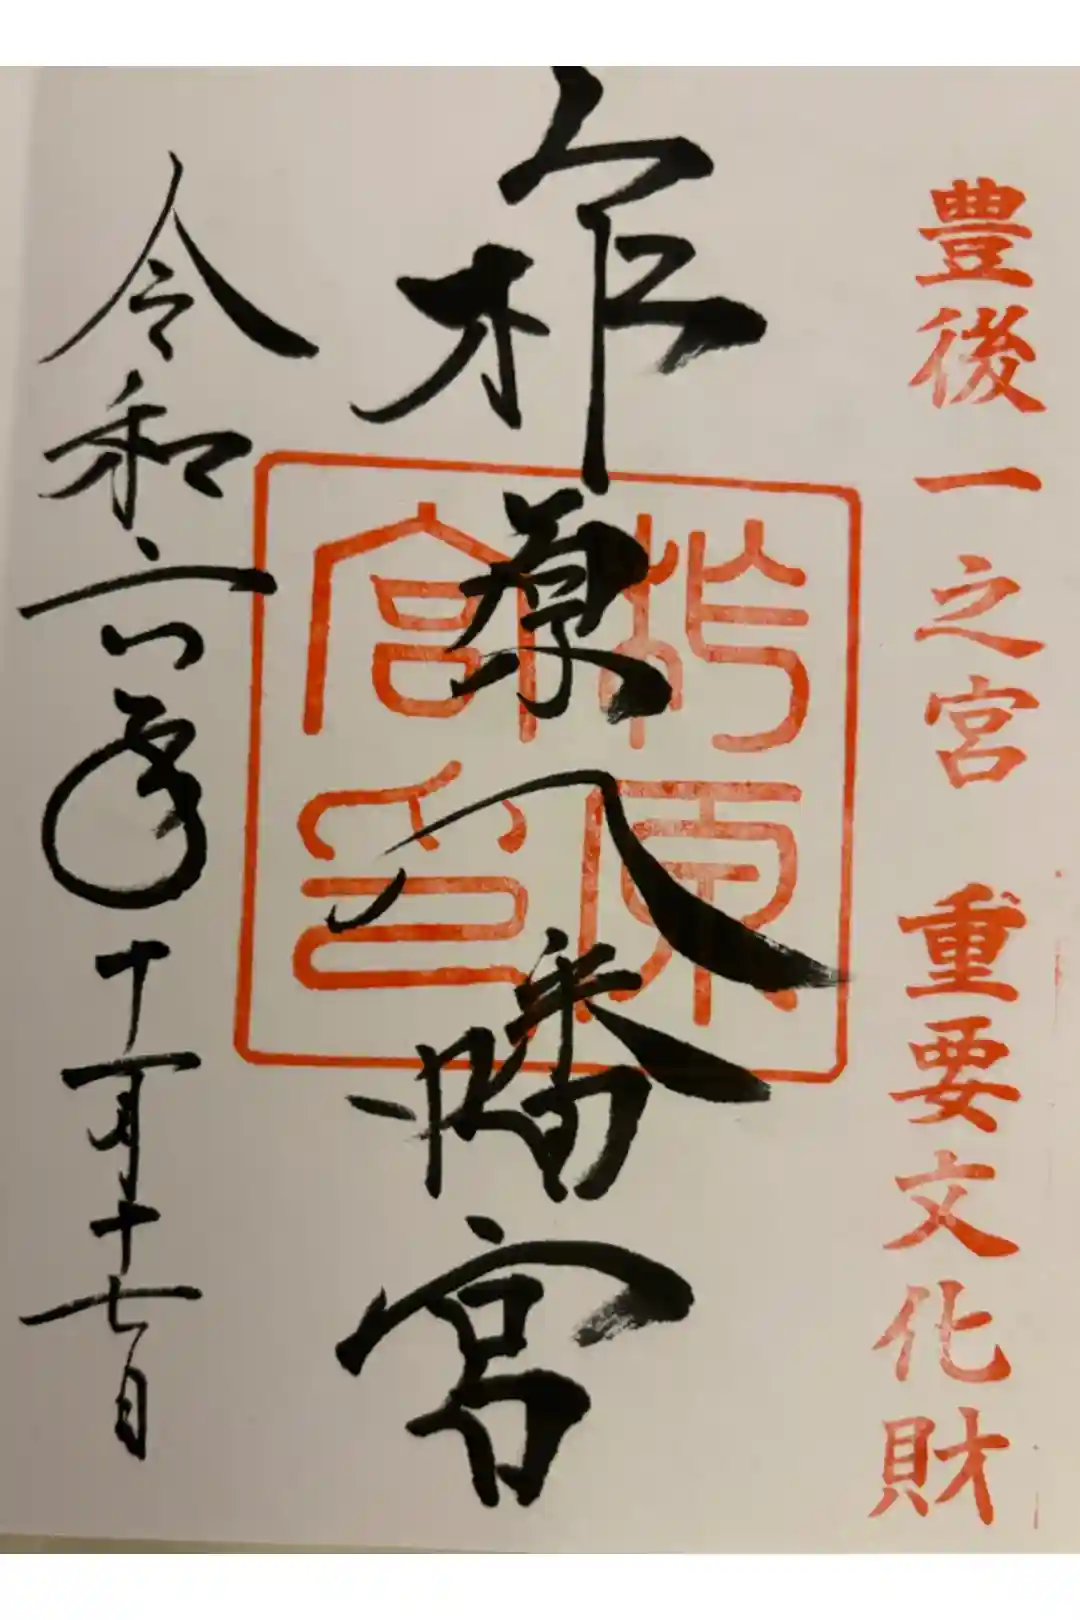 豊後一之宮 重要文化財
柞原八幡宮
柞原宮印
令和六年十一月十七日